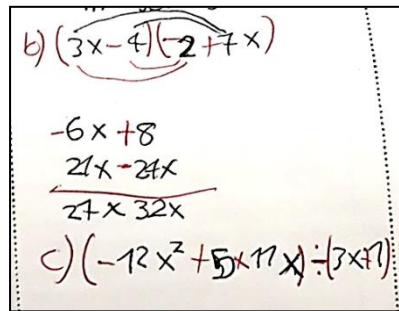 b) (3x-4)(-2+7x)
-6x+8
21x-24x
27x 32x
c) (-12x²+5x17x)÷(3x+1)